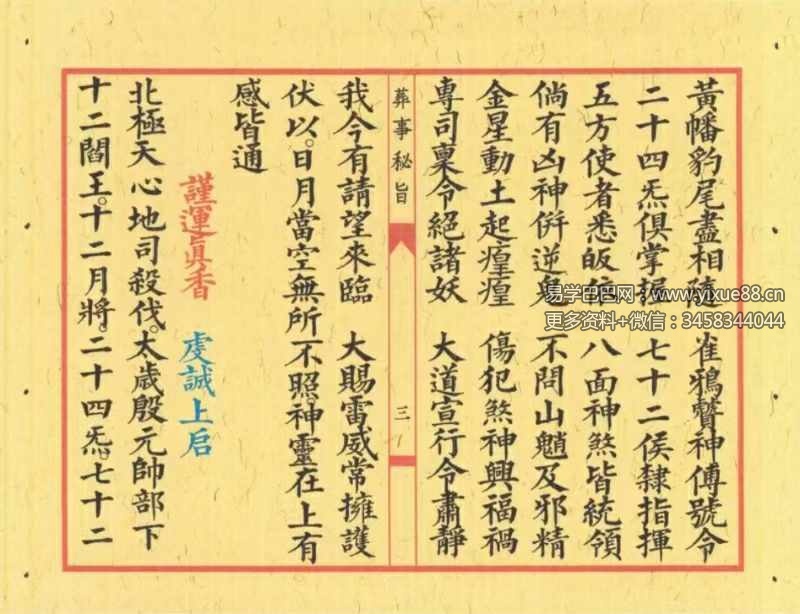 黃幡豹尾盡相隨　雀鴉贊神傳號令
二十四炁俱掌握　七十二侯隸指揮
五方使者悉皈　八面神煞皆統領
倘有凶神併逆鬼　不問山魈及邪精
金星動土起瘟瘟　傷犯煞神興福禍
專司稟令絕諸妖　大道宣行令肅靜
葬事秘旨
三
我今有請望來臨　大賜雷威常擁護
伏以。日月當空無所不照。神靈在上有
感皆通
謹運眞香　虔誠上启
北極天心地司殺伐。太歲殷元帥部下
十二閻王。十二月將。二十四炁。七十二
易学巴巴网：www.yixue88.cn
更多资料+微信：3458344044